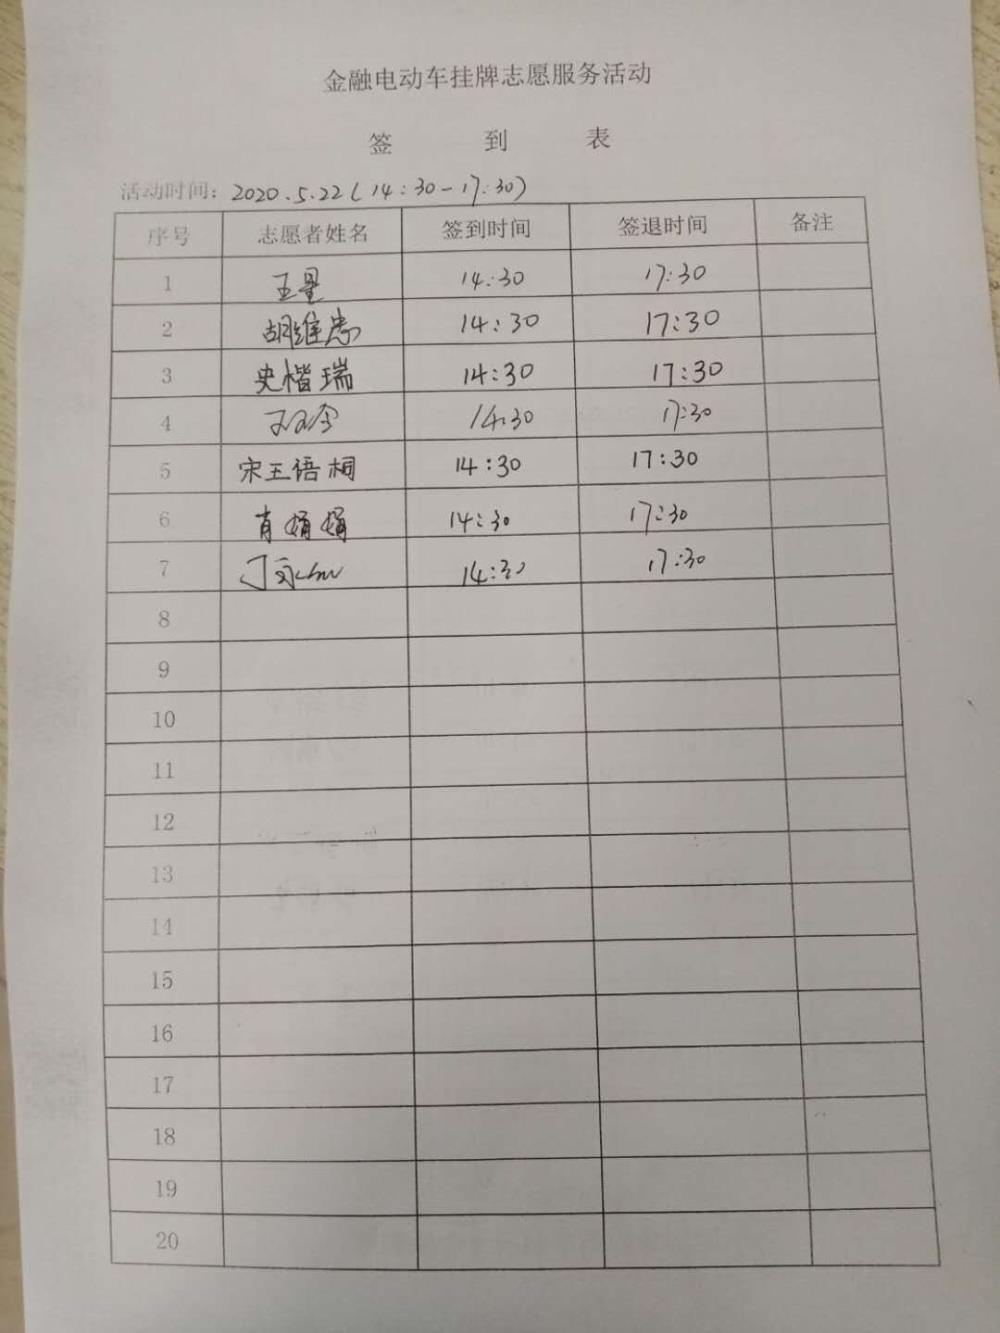 金融电动车挂牌志愿服务活动
签 到 表
活动时间: 2020.5.22(14:30-17:30)
序号 志愿者姓名 签到时间 签退时间 备注
1 王星 14:30 17:30
2 胡维忠 14:30 17:30
3 史楷瑞 14:30 17:30
4 14:30 17:30
5 宋王语桐 14:30 17:30
6 肖娟娟 14:30 17:30
7 14:30 17:30
8
9
10
11
12
13
14
15
16
17
18
19
20